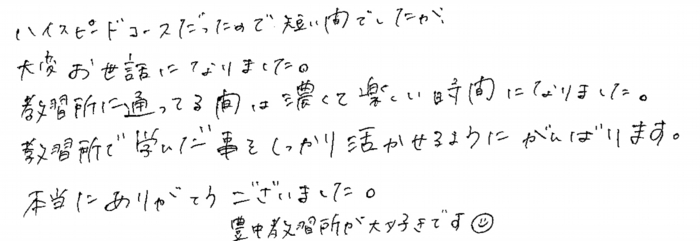 ハイスピードコースだったので短い間でしたが、
大変お世話になりました。
教習所に通ってる間は濃くて楽しい時間になりました。
教習所で学んだ事をしっかり活かせるようにがんばります。
本当にありがとうございました。
豊中教習所が大好きです☺